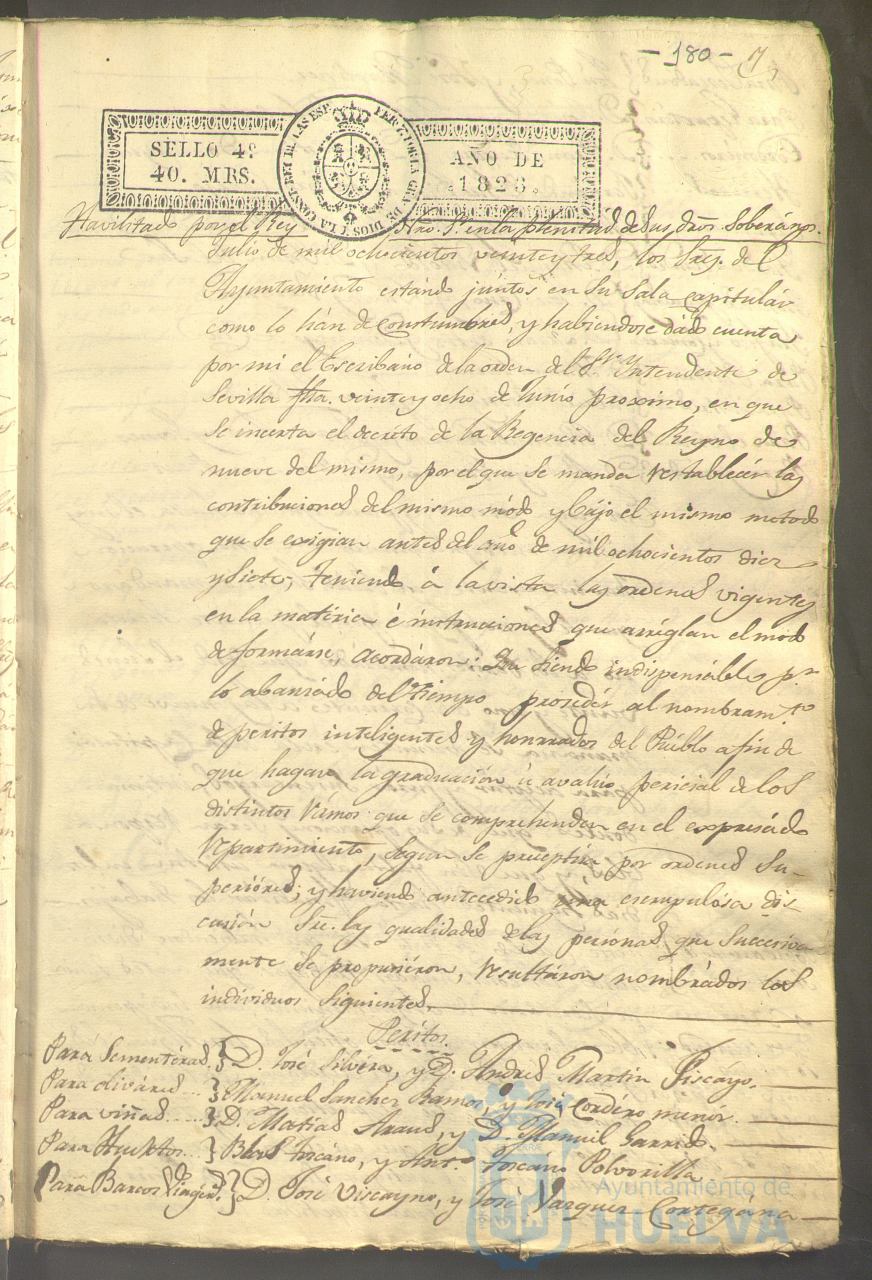 -180- 7,
SELLO 4º
40. MRS.
FER. 7. POR LA GRA. DE DIOS Y LA CONST. REY DE LAS ESP.
AÑO DE
1823.
Havilitado por el Rey Nro. Sr. en la plenitud de sus dros. Soberanos.
Julio de mil ochocientos veinte y tres, los Srs. del
Ayuntamiento estando juntos en su Sala capitular
como lo hán de Constumbre, y habiendose dado cuenta
por mi el Escribano de la orden del Sr. Yntendente de
Sevilla fha. veinte y ocho de Junio proximo, en que
se incerta el decreto de la Regencia del Reyno de
nueve del mismo, por el que se manda restablecér las
contribuciones del mismo modo y bajo el mismo metodo
que se exigian antes del año de mil ochocientos diez
y siete, teniendo á la vista las ordenes vigentes
en la materia é instrucciones que arréglan el modo
de formárse, acordáron: Que siendo indispensable pr.
lo abanzado del tiempo procedér al nombramto.
de peritos inteligentes y honrrados del Pueblo a fin de
que hagan la graduación ú avalúo pericial de los
distintos ramos que se comprehenden en el expresado
repartimiento, segun se preceptúa por ordenes Su-
perióres; y haviendo antecedido una escrupulosa dis-
cusión Sre. las qualidades de las personas que succesiva
mente se propusiéron, resultáron nombrádos los
individuos siguientes.
Peritos.
Para Sementéras } D. José Silvéra, y D. Andres Martin Piscayo.
Para olivares } Manuel Sanchez Ramos, y José Cordéro menor.
Para viñas } D. Matias Araus, y D. Manuel Garrido.
Para Huertos } Blas Toscáno, y Anto. Toscano Polvorilla
Para Barcos } D. José Viscayno, y José Vazquez Cortegána
Ayuntamiento de
HUELVA